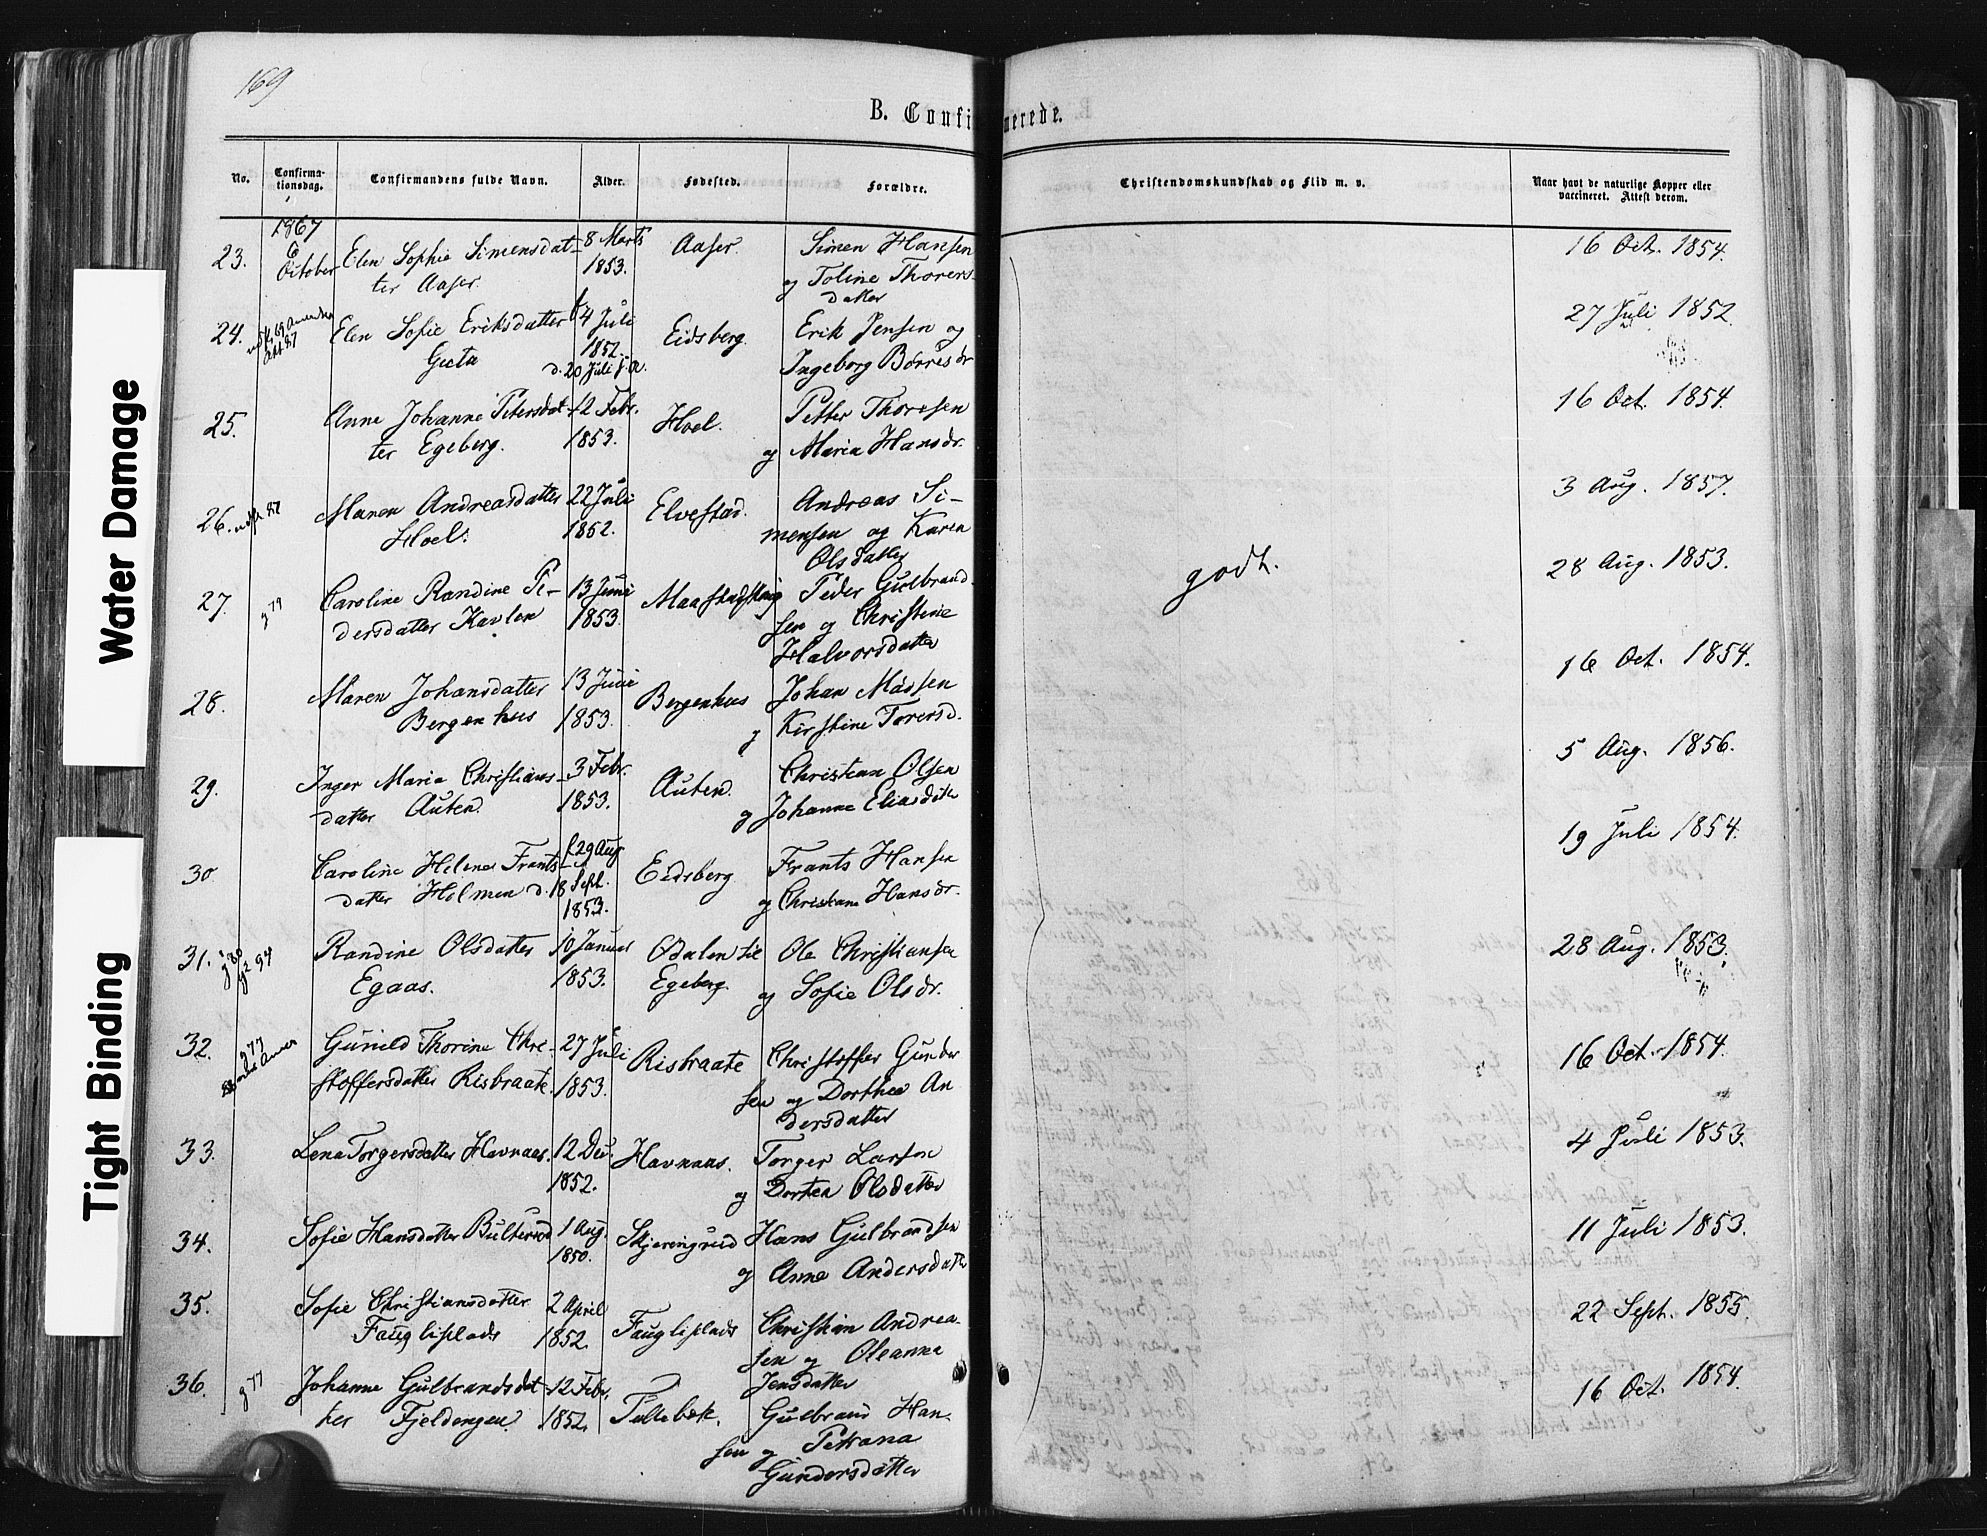 169
B. Confirmerede.
No.
Confirma-
tionsdag.
Confirmandens fulde Navn.
Alder.
Fødested.
Forældre.
Christendomskundskab og Flid m. v.
Naar havt de naturlige Kopper eller
vaccineret. Attest derom.
1867
23. 6 October Elen Sophie Simensdat- 8 Marts Aaser Simen Hansen 16 Oct. 1854.
ter Aaser. 1853. og Toline Thorers-
datter
24. Elen Sofie Eriksdatter f. 4 Juli Eidsberg. Erik Jensen og 27 Juli 1852.
1852. Ingeborg Börresdr
d. 20 Juli s. A.
25. Anne Johanne Petersdat- 12 Febr. Hoel. Petter Thoresen 16 Oct. 1854.
ter Egeberg. 1853. og Maria Hansdr.
26. Maren Andreasdatter 22 Juli Elvestad. Andreas Si- 3 Aug. 1857.
Hoel. 1852. mensen og Karen
Olsdatter
27. g 79 Caroline Randine Pe- 13 Juni Peder Gulbrand- godt. 28 Aug. 1853.
dersdatter 1853. sen og Christine
Halvorsdatter
28. Maren Johansdatter 13 Juni Bergenhus Johan 16 Oct. 1854.
Bergenhus 1853. og Kirstine Torersd.
29. Inger Maria Christians- 3 Febr. Auten. Christian Olsen 5 Aug. 1856.
datter Auten. 1853. og Johanne Eliasdatter
30 Caroline Helene Frants- f. 29 Aug Eidsberg Frants Hansen 19 Juli 1854.
datter Holmen d. 18 Sept. og Christiane Hansdr.
1853.
31. Randine Olsdatter 10 Januar Odalen til Ole Christiansen 28 Aug. 1853.
Egaas. 1853. Egeberg. og Sofie Olsdr.
32. g 77 Gunild Thorine Chri- 27 Juli Risbraate Christoffer Gunder 16 Oct. 1854.
stoffersdatter Risbraate. 1853. sen og Dorthea An
dersdatter
33. Lena Torgersdatter Havnaas. 12 Dec. Havnaas. Torger Larsen 4 Juli 1853.
1852. og Dortea Olsdatter
34. Sofie Hansdatter 1 Aug. Skjereingrud Hans Gulbrandsen 11 Juli 1853.
1850. og Anne Andersdatter
35. Sofie Christiansdatter 2 April Faugliplads Christian Andrea- 22 Sept. 1855.
Faugliplads 1852. sen og Oleanna
Jensdatter
36. g 77 Johanne Gulbrandsdat- 12 Febr. Tullebæk. Gulbrand Han- 16 Oct. 1854.
ter Fjeldengen. 1852. sen og Petrana
Gundersdatter
Water Damage
Tight Binding